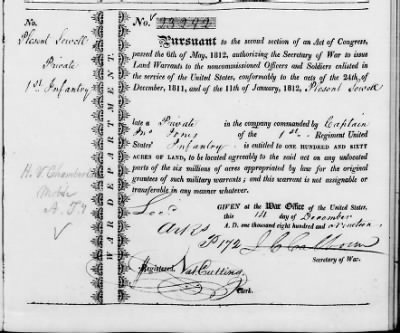 No.
Plesent Sewell
Private
1st Infantry
H. V. Chamberl
A. T.
WAR DEPARTMENT.
No.
Pursuant to the second section of an Act of Congress,
passed the 6th of May, 1812, authorizing the Secretary of War to issue
Land Warrants to the noncommissioned Officers and Soldiers enlisted in
the service of the United States, conformably to the acts of the 24th of
December, 1811, and of the 11th of January, 1812, Plesent Sewell
late a Private in the company commanded by Captain
Jno. Jones of the 1st Regiment United
States' Infantry is entitled to ONE HUNDRED AND SIXTY
ACRES OF LAND, to be located agreeably to the said act on any unlocated
parts of the six millions of acres appropriated by law for the original
grantees of such military warrants; and this warrant is not assignable or
transferable in any manner whatever.
GIVEN at the War Office of the United States,
this 14 day of December
A. D. one thousand eight hundred and nineteen
Arks
P 172 J C Calhoun
Secretary of War.
Registered, Nat Cutting
Clerk.